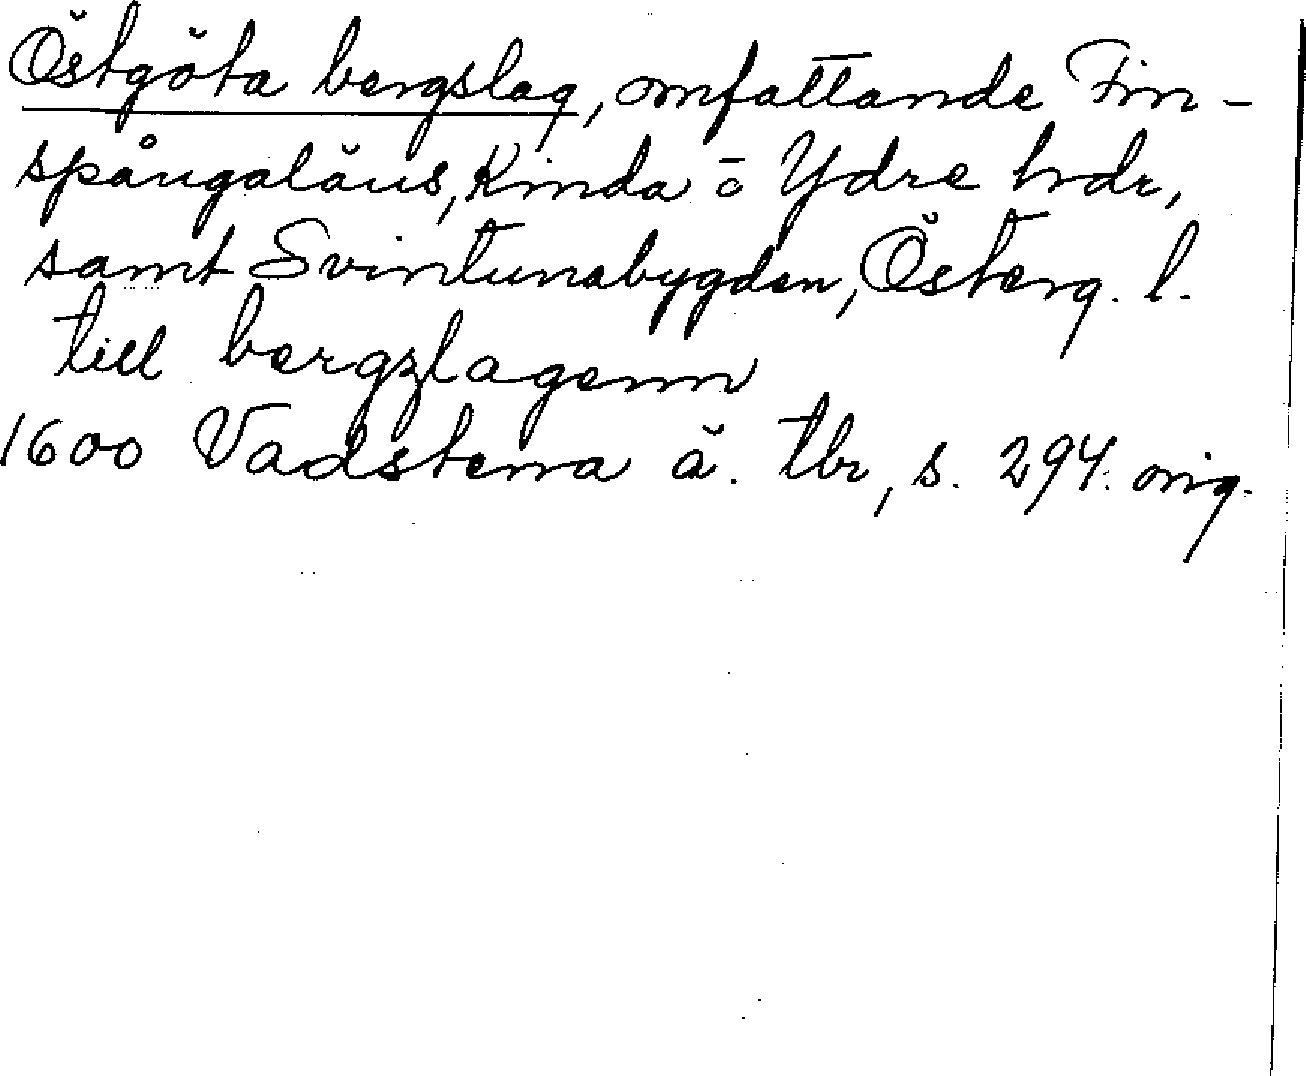 Östgöta bergslag, omfattande Fin-
spångaläns, Kinda o Ydre hrdr,
samt Svintunabygden, Österg. l.
till bergzlagenn
1600 Vadstena ä. tbr, s. 294. orig.